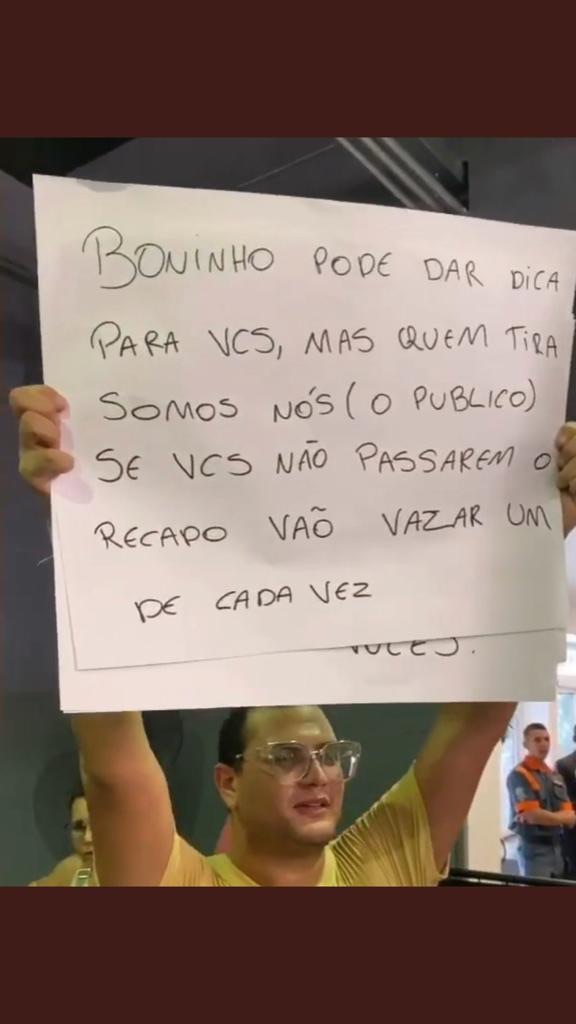 BONINHO PODE DAR DICA
PARA VCS, MAS QUEM TIRA
SOMOS NÓS (O PUBLICO)
SE VCS NÃO PASSAREM O
RECADO VAÕ VAZAR UM
DE CADA VEZ